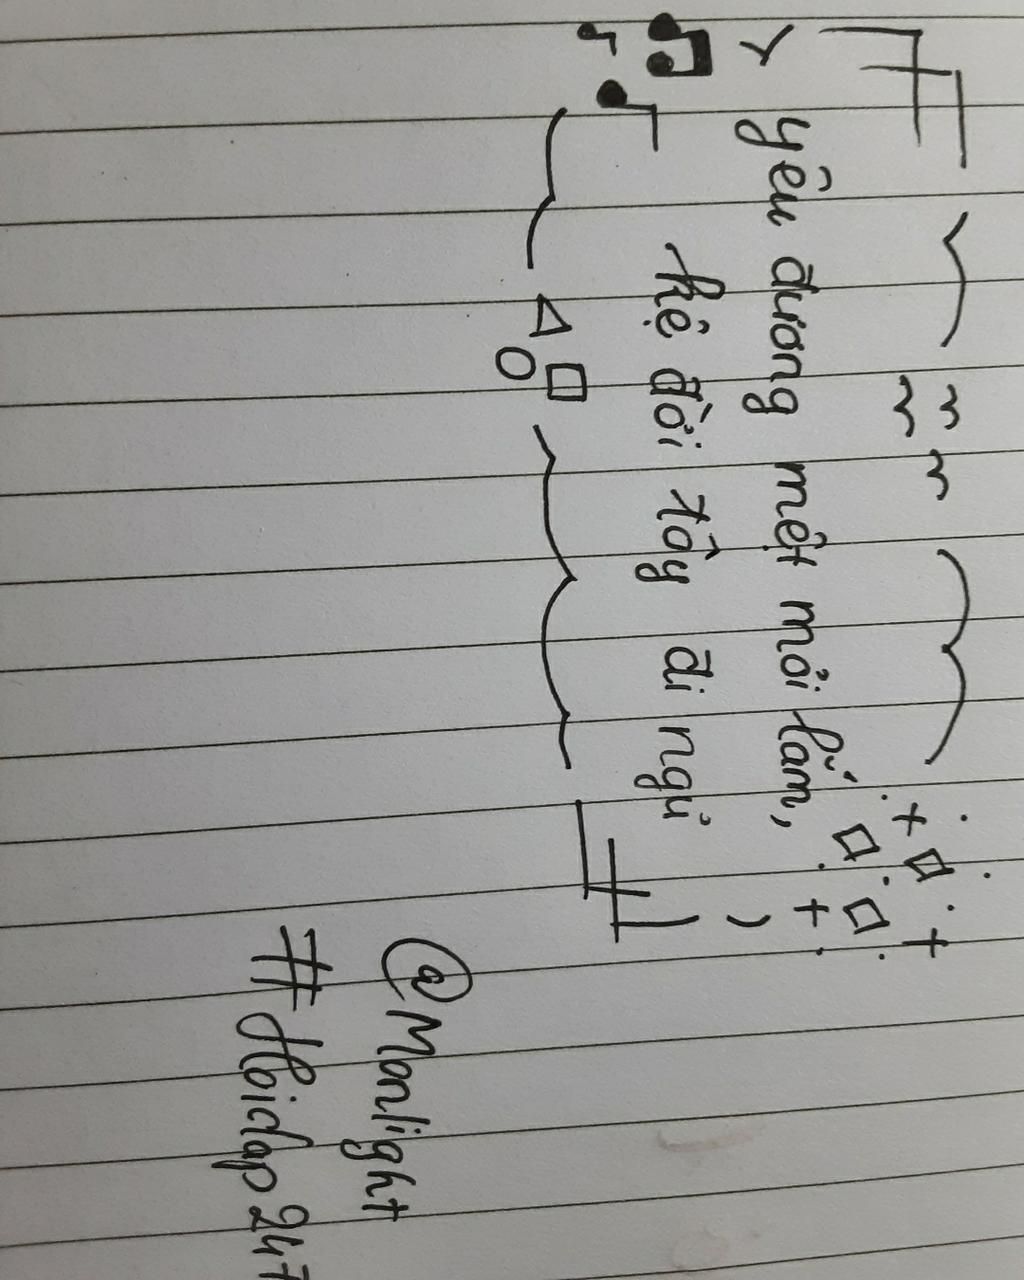 yêu đương mệt mỏi lắm,
kệ đời tồy đi ngủ
@Monlight
#Hoidap247